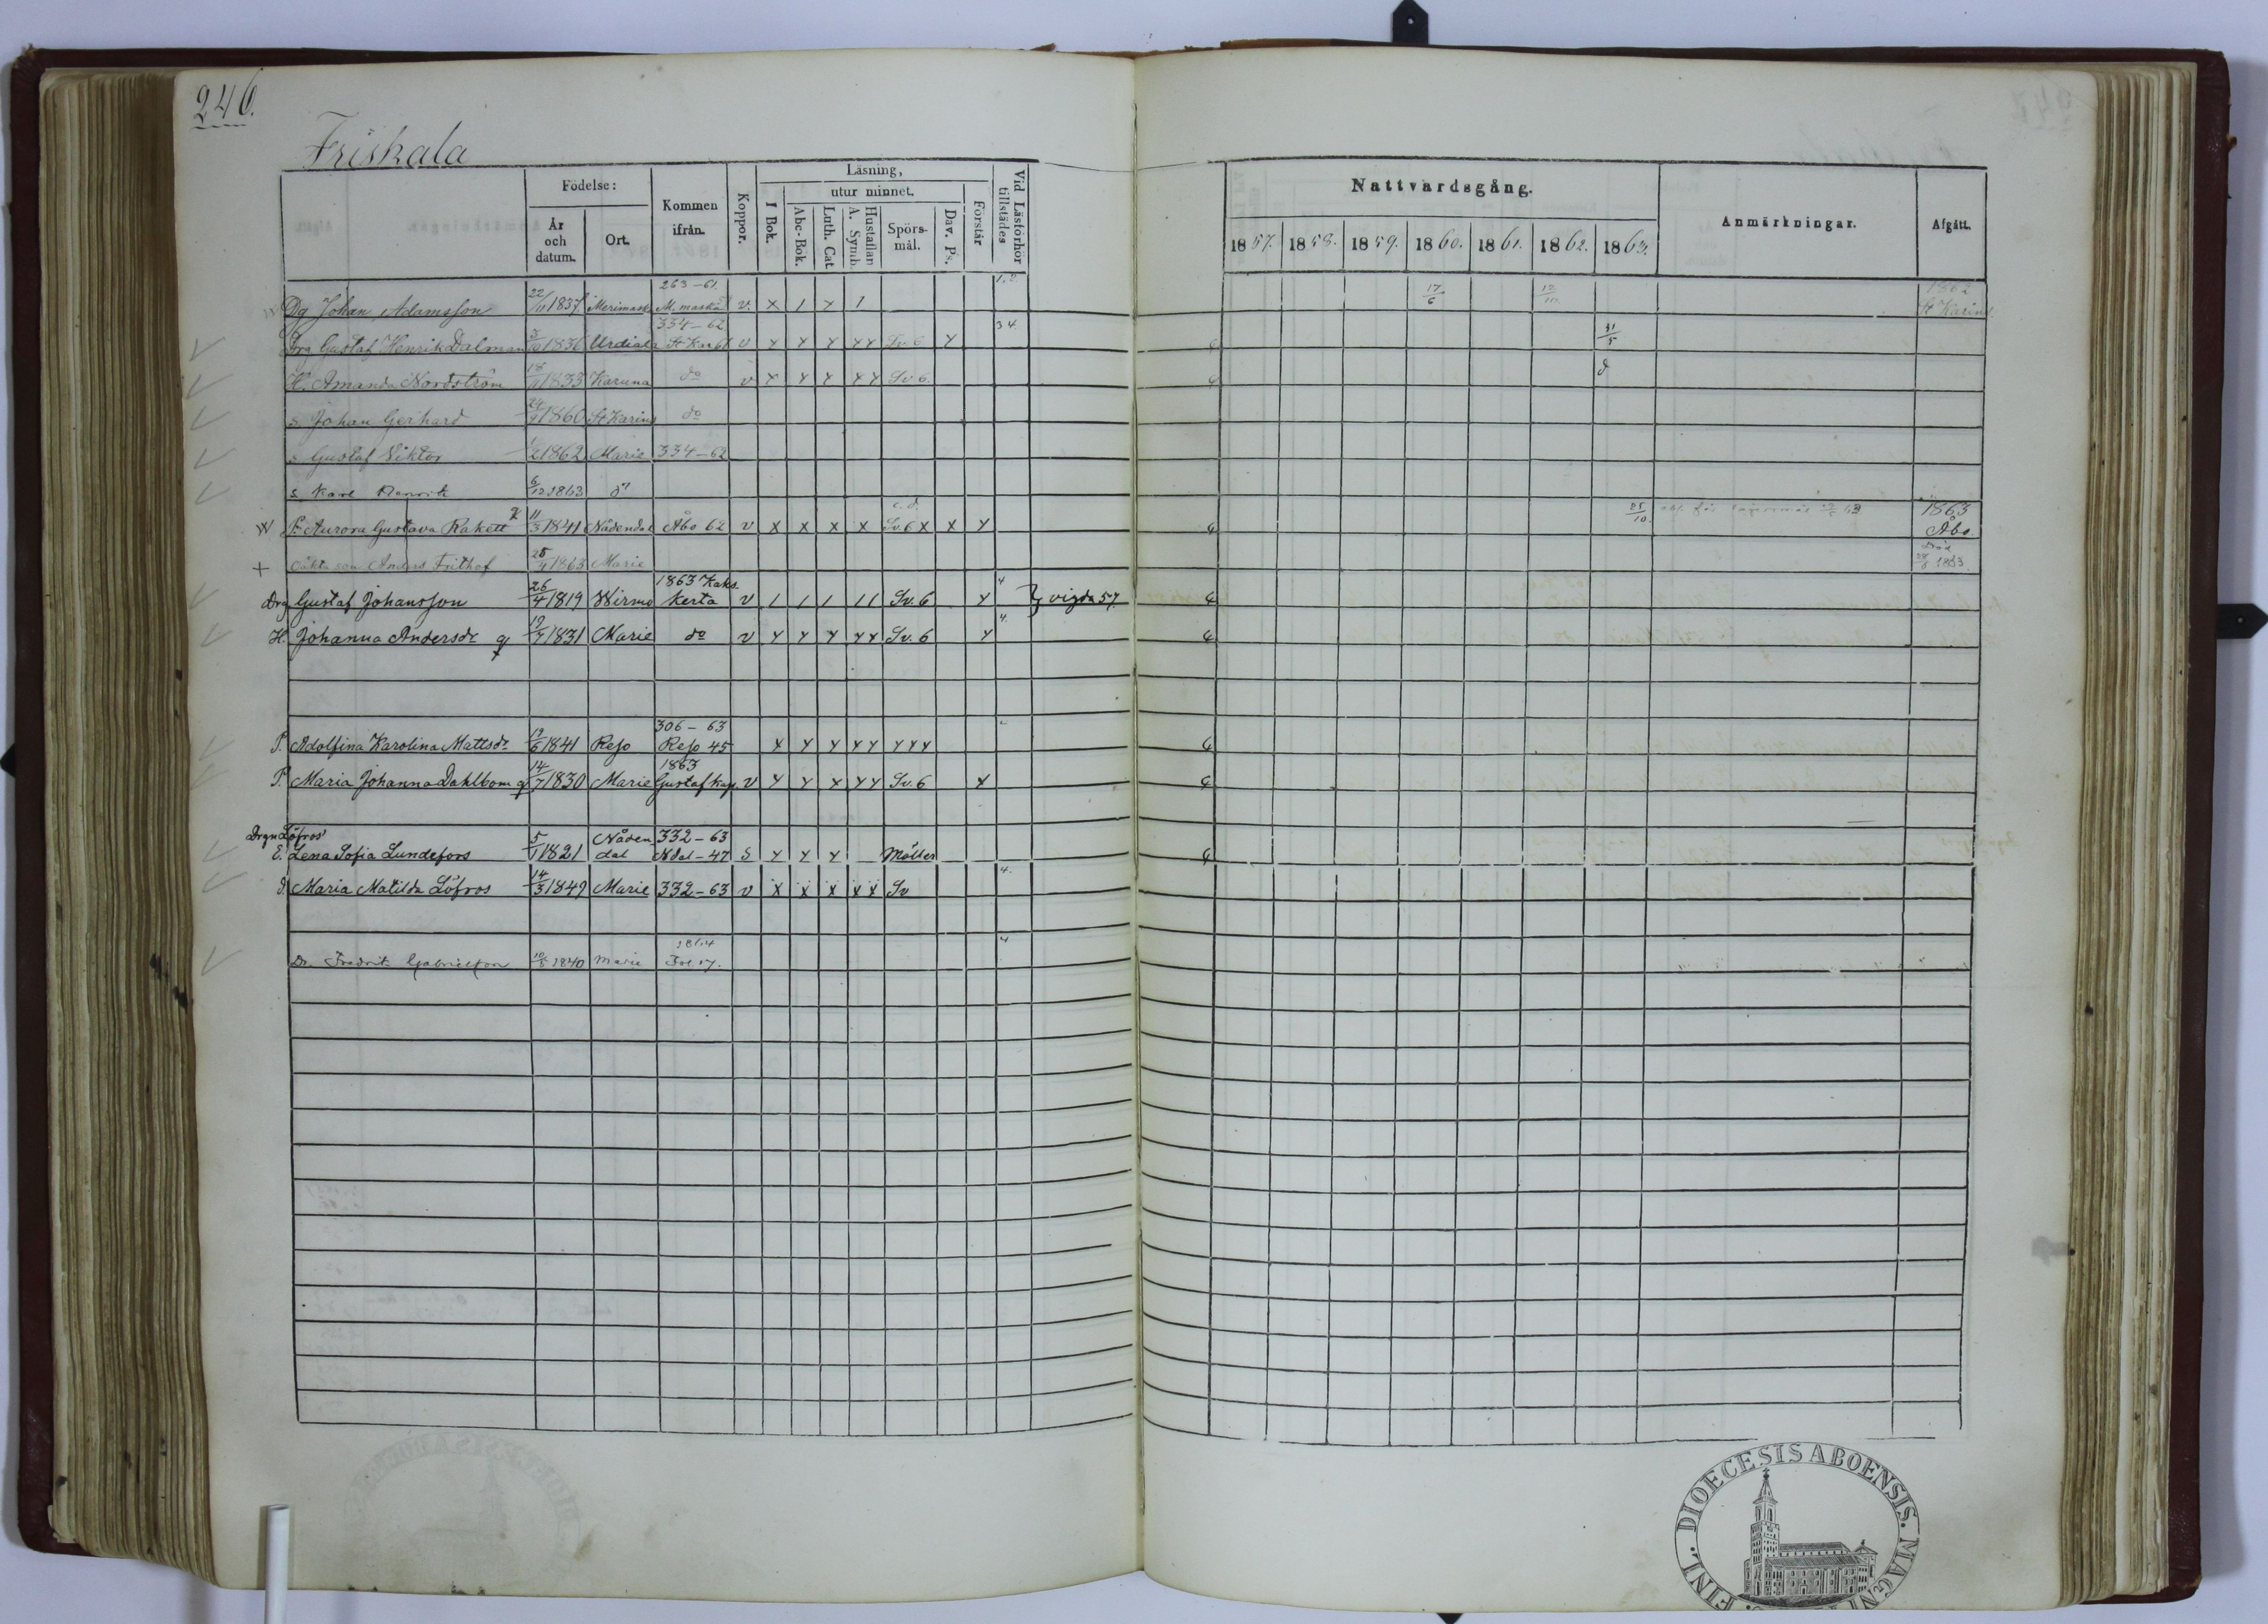 246.
Friskala
Födelse: Kommen ifrån. Koppor. Läsning, Vid Läsförhör tillstädes Nattvardsgång. Anmärkningar. Afgått.
År och datum. Ort. I Bok. utur minnet. Förstår
Abc-Bok. Luth. Cat. Hustaflan A. Symb. Spörsmål. Dav. Ps. 1857. 1858. 1859. 1860. 1861. 1862. 1863.
263-61. 1.2. 1862
Dg Johan Adamsson 22/11 1837 Merimask M. maskü v. x 1 x 1 17/6 12/10 St Karins
334-62 3 4.
Drg Gustaf Henrik Dalman 1836 Urdiala St Kar 61 v x x x xx Sv. 6 x 31/5
H. Amanda Nordström 18/11 1833 Karuna do v x x x xx Sv 6. d
s Johan Gerhard 24/9 1860 St Karins do
s Gustaf Viktor 1/2 1862 Marie 334-62
s. Karl Henrik 6/12 1863 do
P. Aurora Gustava Rakett 11/3 1841 Nådendal Åbo 62 v x x x x Sv. 6 x x x 25/10 1863 Åbo
+ oäkta son Anders Frithof 25/4 1863 Marie Död 28/5 1863
1863 Kaks 4
Drg Gustaf Johansson 26/4 1819 Wirmo kerta v 1 1 1 11 Sv. 6 x } vigda 57
4.
H. Johanna Andersdr 1831 Marie do v x x x xx Sv. 6 x
306-63
P. Adolfina Karolina Mattsdr 1841 Reso Reso 45 x x x xx xxx
1863
P. Maria Johanna Dahlbom 14/7 1830 Marie Gustaf Kap. v x x x xx Sv. 6 x
Drgn Löfros' Nåden 332-63
E. Lena Sofia Lundefors 5/1 1821 dal Ndal-47 s x x x Möller
4.
d. Maria Matilda Löfros 14/3 1849 Marie 332-63 v x x x xx Sv
4
Dr. Fredrik Gabrielsson 10/8 1840 Marie
DIOECESIS ABOENSIS. MAGNI
FINL.